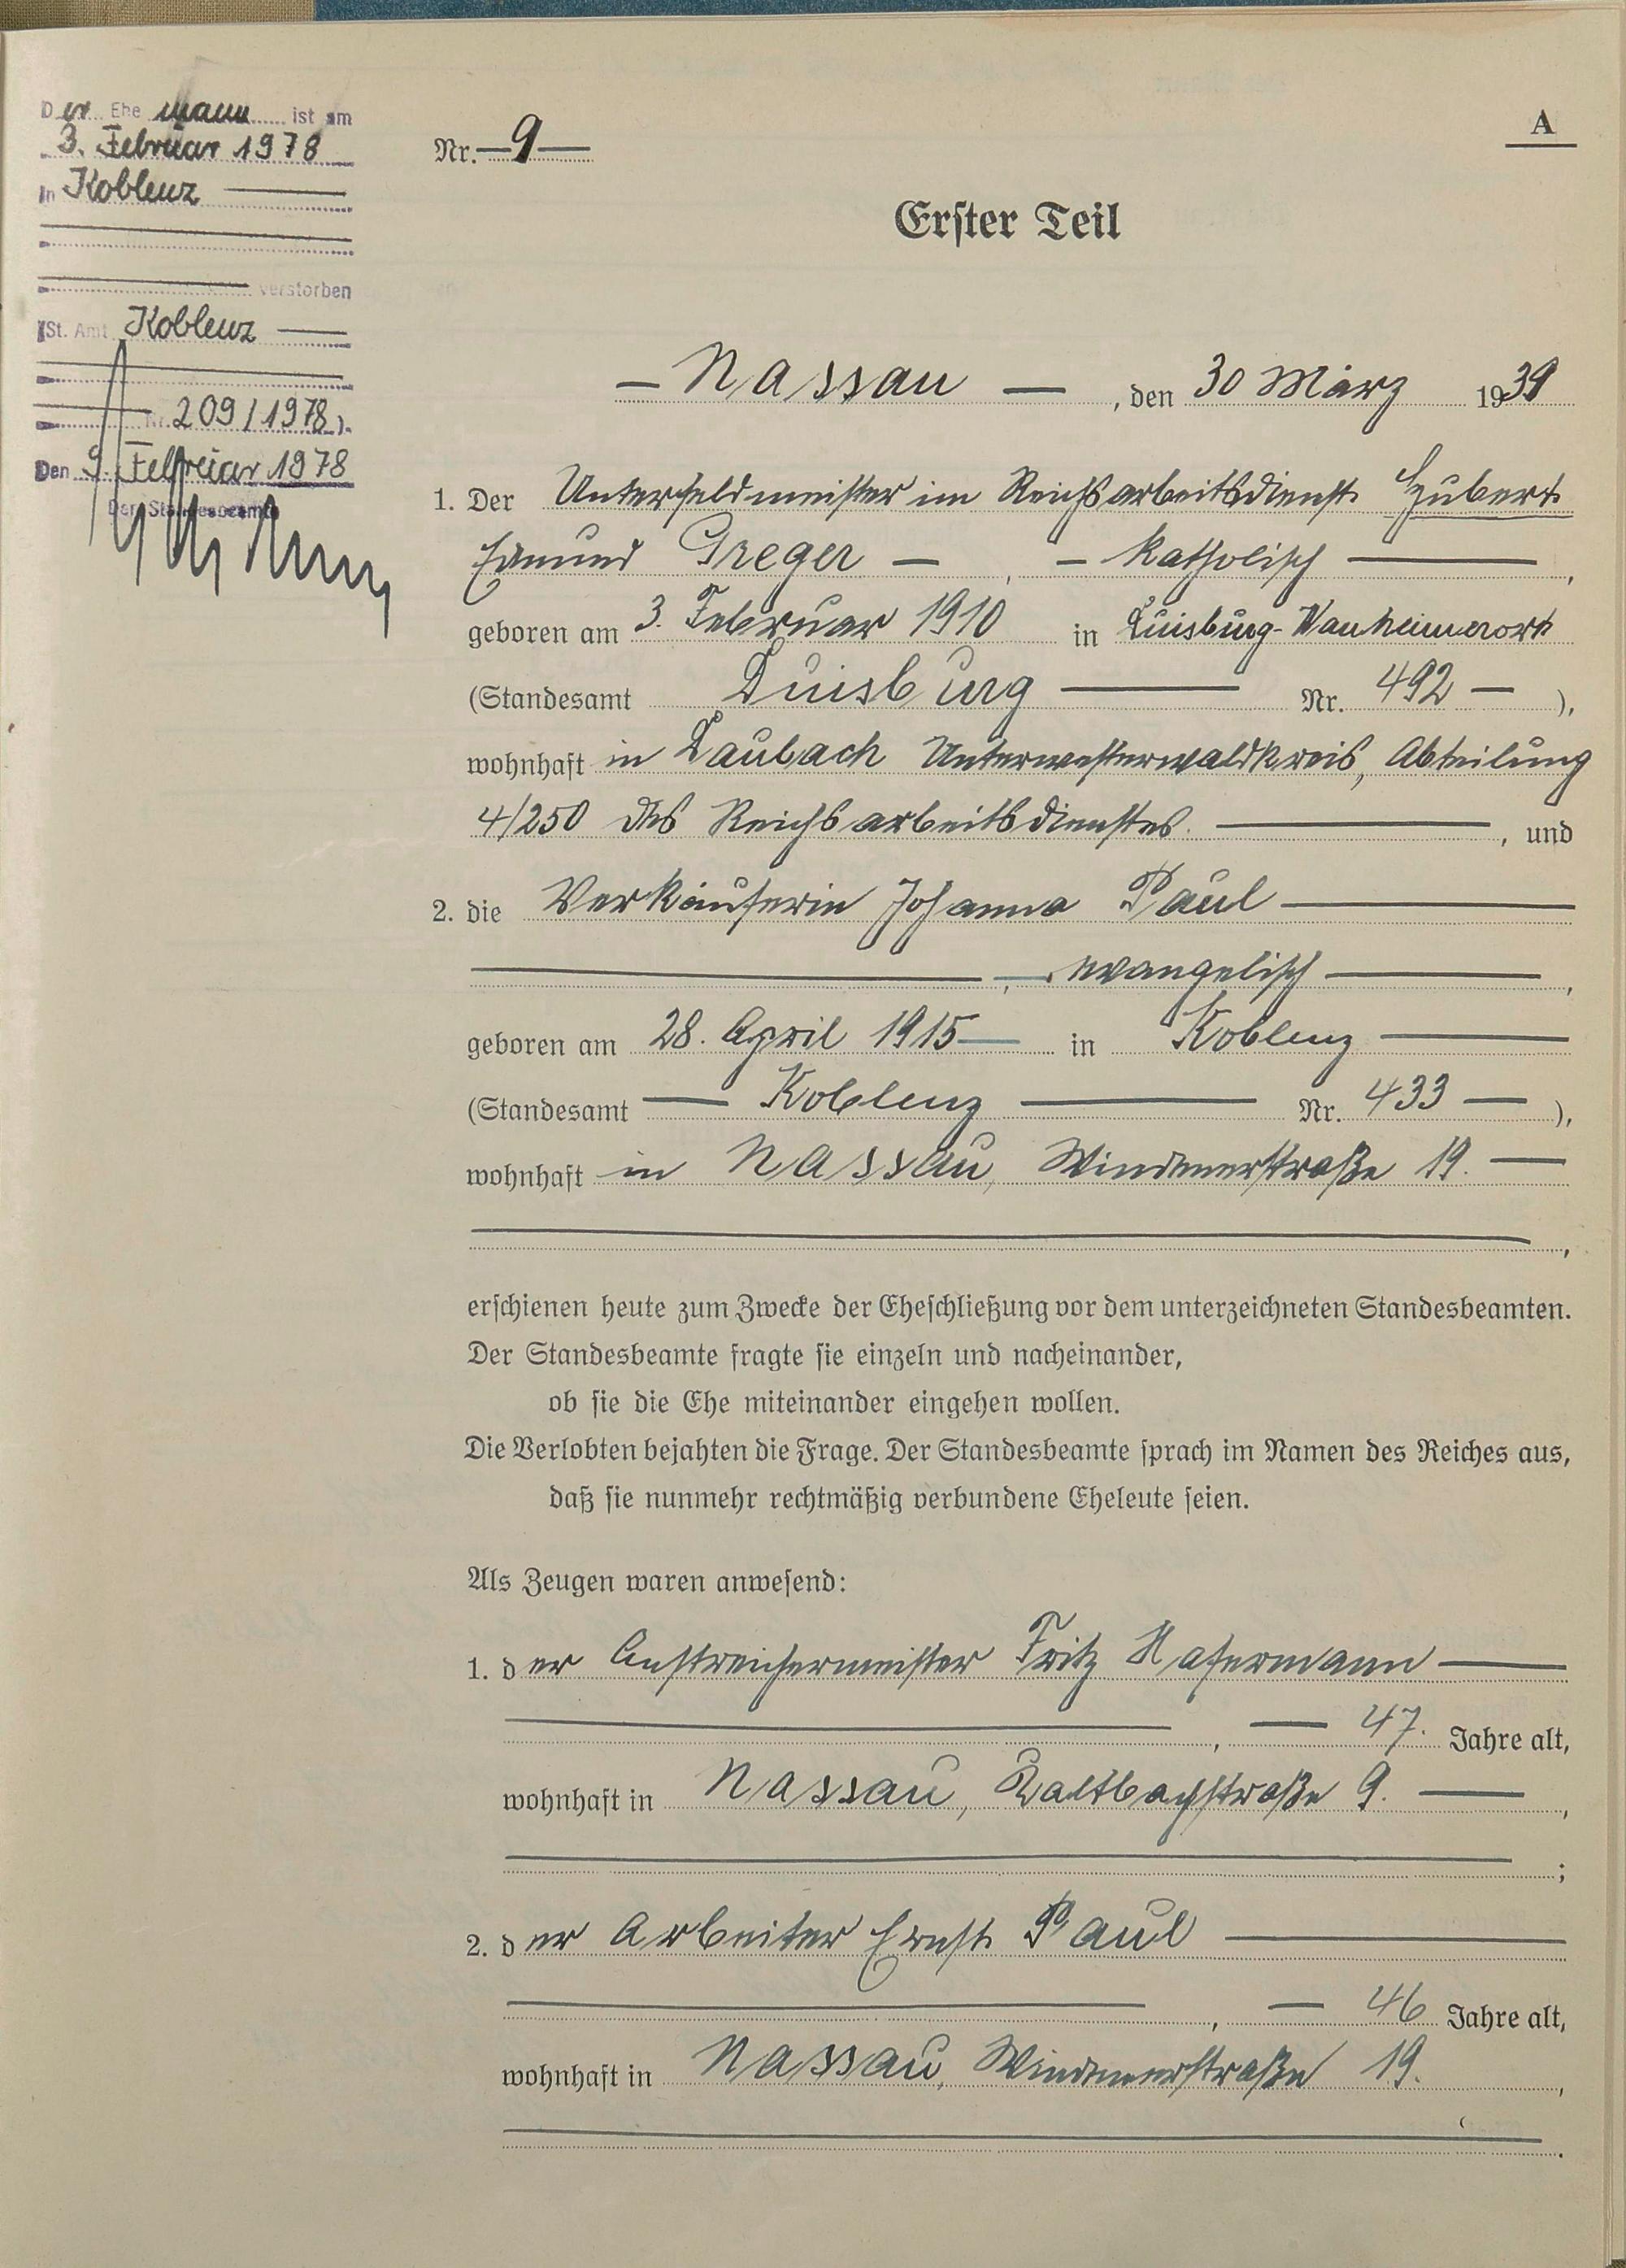 Der Ehemann ist am
3. Februar 1978
in Koblenz
verstorben
(St. Amt Koblenz
Nr. 209/1978).
Den 9. Februar 1978
Der Standesbeamte
A
Nr. 9
Erster Teil
Nassau, den 30 März 1939
1. Der Unterfeldmeister im Reichsarbeitsdienst Hubert
Edmund Greger, katholisch,
geboren am 3. Februar 1910 in Duisburg-Wanheimerort
(Standesamt Duisburg Nr. 492),
wohnhaft in Laubach Unterwesterwaldkreis, Abteilung
4/250 des Reichsarbeitsdienstes, und
2. die Verkäuferin Johanna Paul
, evangelisch,
geboren am 28. April 1915 in Koblenz
(Standesamt Koblenz Nr. 433),
wohnhaft in Nassau, Windenerstraße 19.
,
erschienen heute zum Zwecke der Eheschließung vor dem unterzeichneten Standesbeamten.
Der Standesbeamte fragte sie einzeln und nacheinander,
ob sie die Ehe miteinander eingehen wollen.
Die Verlobten bejahten die Frage. Der Standesbeamte sprach im Namen des Reiches aus,
daß sie nunmehr rechtmäßig verbundene Eheleute seien.
Als Zeugen waren anwesend:
1. der Anstreichermeister Fritz Hafermann
, 47. Jahre alt,
wohnhaft in Nassau, Kaltbachstraße 9.,
;
2. der Arbeiter Ernst Paul
, 46 Jahre alt,
wohnhaft in Nassau, Windenerstraße 19.,
.